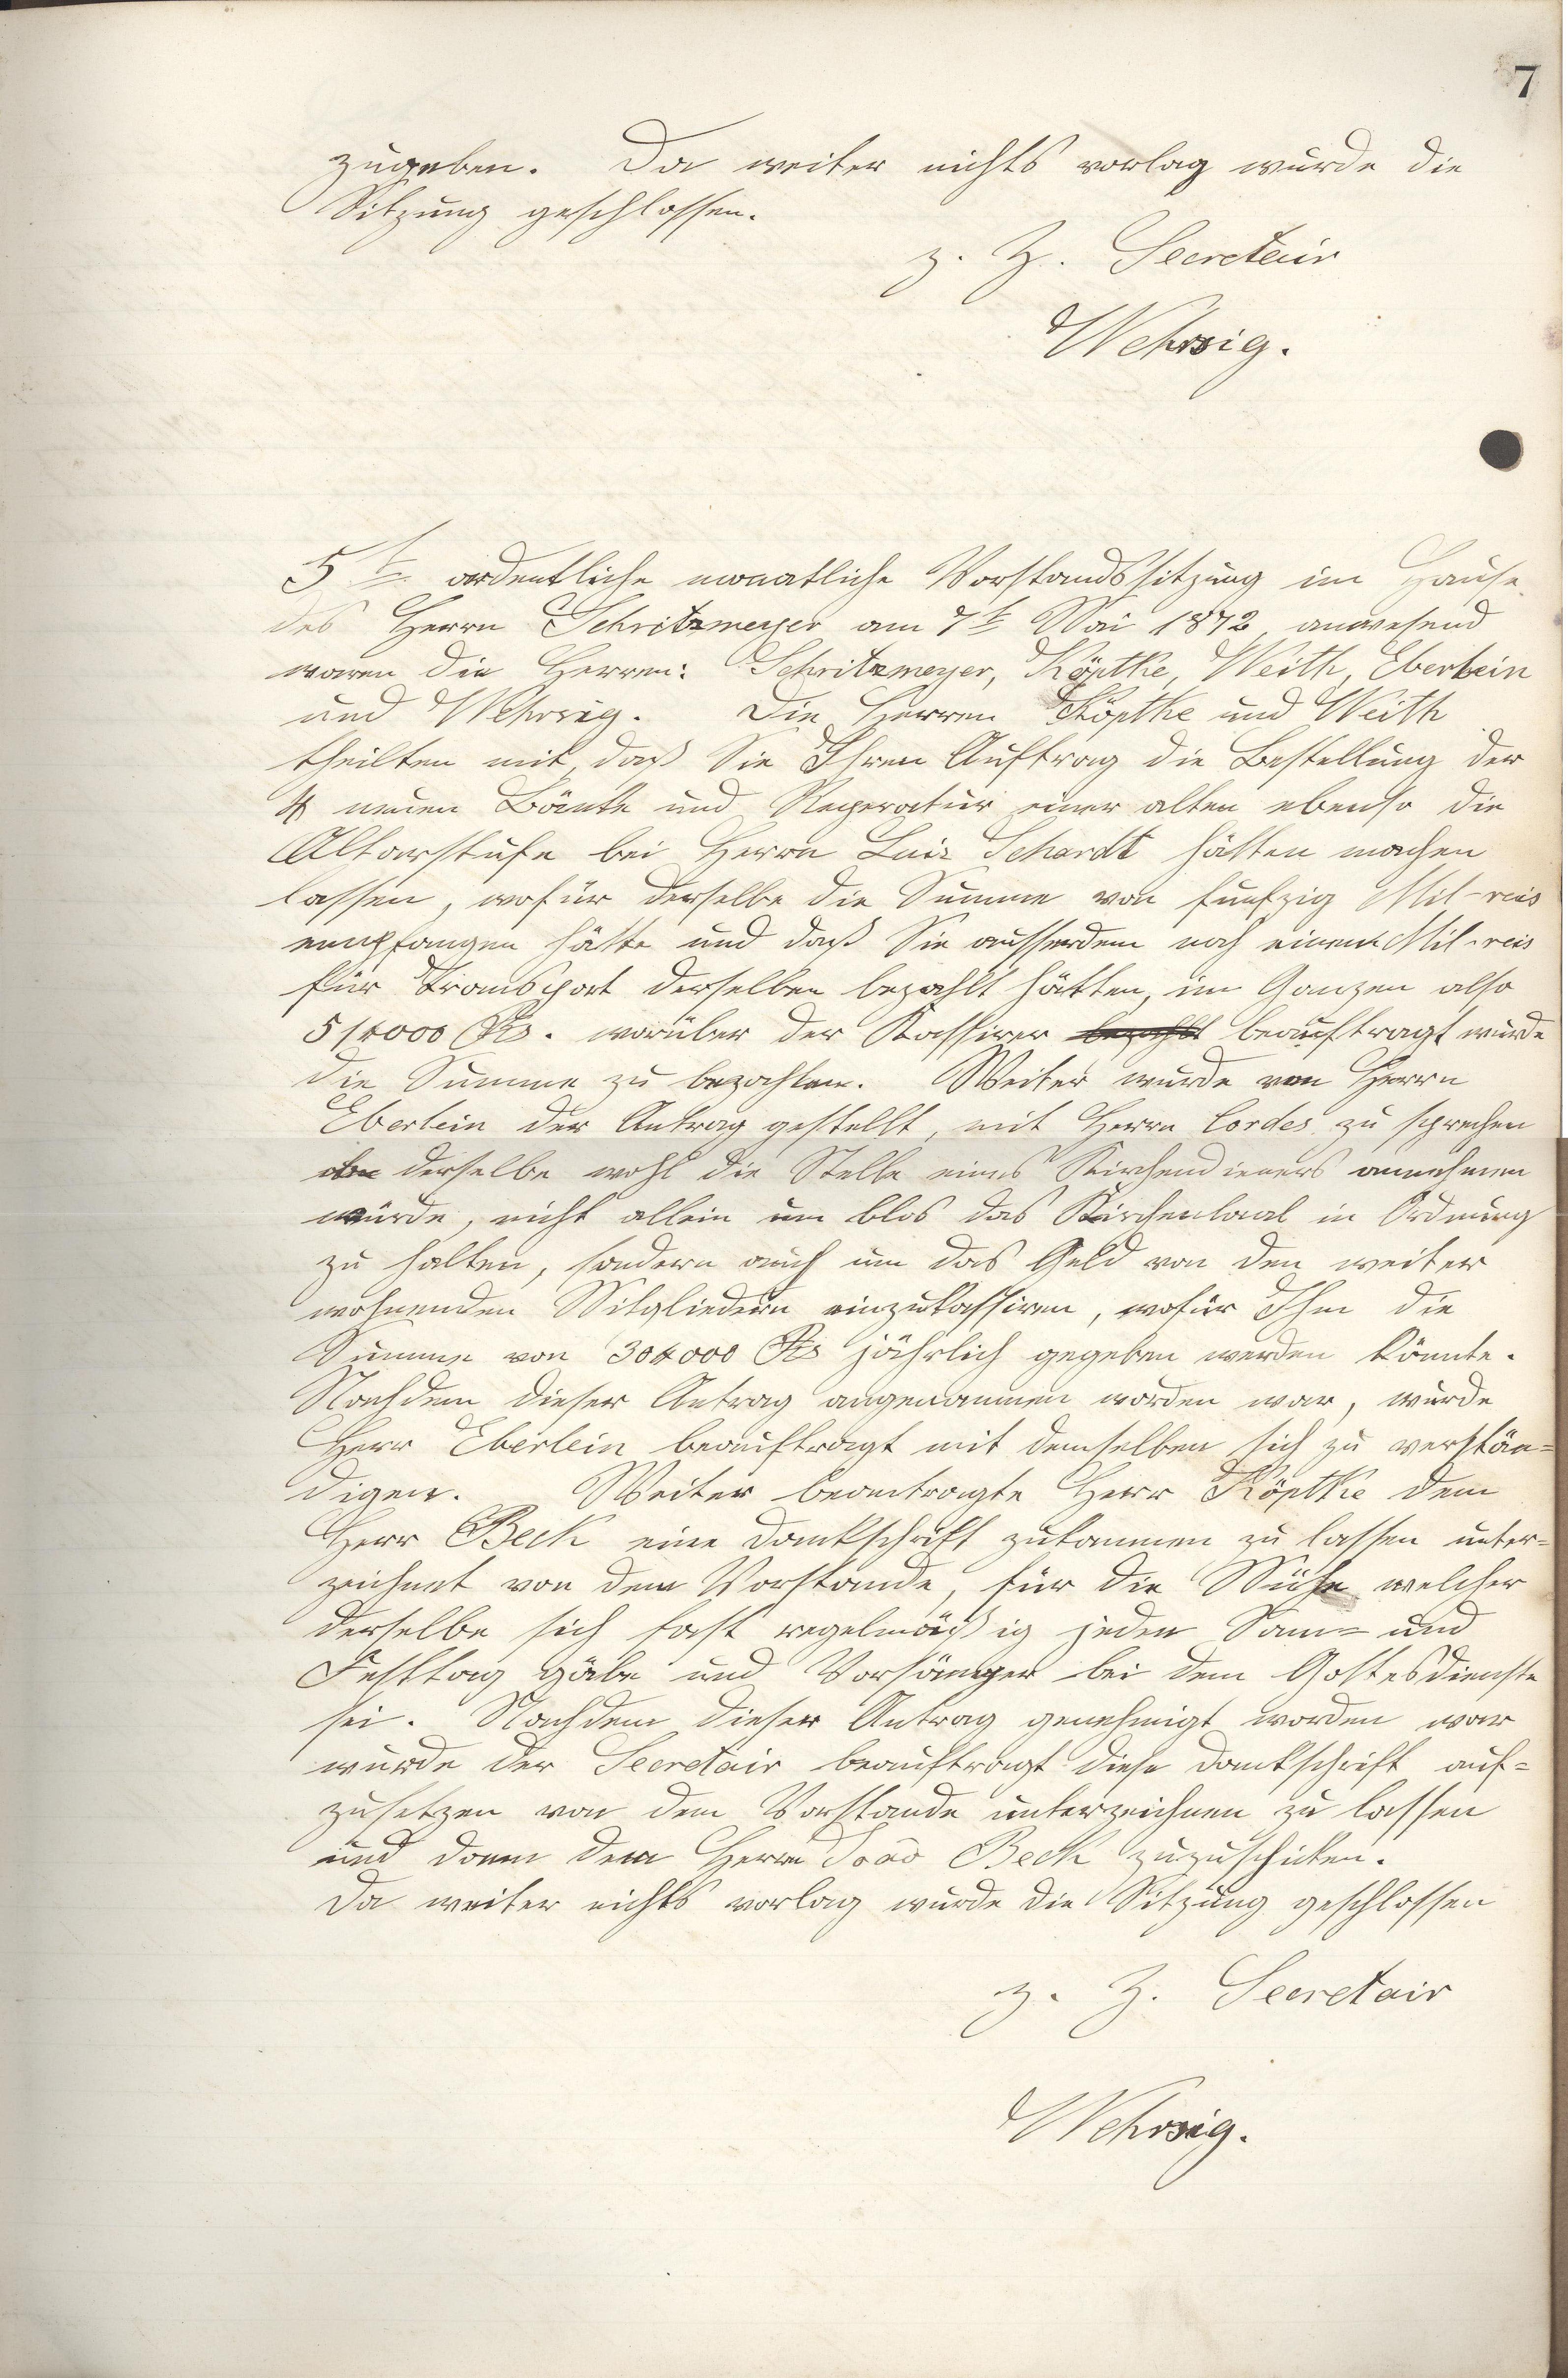 7
zugeben. Da weiter nichts vorlag wurde die
Sitzung geschlossen.
z. Z. Secretair
Wehrsig.
5te ordentliche monatliche Vorstandssitzung im Hause
des Herrn Schritzmeyer am 7t Mai 1872, anwesend
waren die Herren: Schritzmeyer, Köptke, Weith, Eberlein
und Wehrsig. Die Herren Köptke und Weith
theilten mit, daß Sie Ihren Auftrag die Bestellung der
4 neuen Bänke und Reperatur einer alten ebenso die
Altarstufe bei Herrn Luiz Schardt hätten machen
lassen, wofür derselbe die Summe von funfzig Mil-reis
empfangen hätte und daß Sie ausserdem noch einen Mil-reis
für Transport derselben bezahlt hätten, im Ganzen also
51$000 Rs. worüber der Kassirer bezahlt beauftragt wurde
die Summe zu bezahlen. Weiter wurde von Herrn
Eberlein der Antrag gestellt, mit Herrn Cordes zu sprechen
derselbe wohl die Stelle eines Kirchendieners annehmen
würde, nicht allein um blos das Kirchenlocal in Ordnung
zu halten, sondern auch um das Geld von den weiter
wohnenden Mitgliedern einzukassiren, wofür Ihm die
Summe von 30$000 Rs jährlich gegeben werden könnte.
Nachdem dieser Antrag angenommen worden war, wurde
Herr Eberlein beauftragt mit demselben sich zu verstän=
digen. Weiter beantragte Herr Köptke dem
Herr Beck eine Dankschrift zukommen zu lassen unter=
zeichnet von dem Vorstande, für die Mühe welcher
derselbe sich fast regelmäßig jeden Sonn= und
Festtag gäbe und Vorsänger bei dem Gottesdienste
sei. Nachdem dieser Antrag genehmigt worden war
wurde der Secretair beauftragt diese Dankschrift auf=
zusetzen von dem Vorstande unterzeichnen zu lassen
und dann dem Herrn João Beck zuzuschicken.
Da weiter nichts vorlag wurde die Sitzung geschlossen
z. Z. Secretair
Wehrsig.